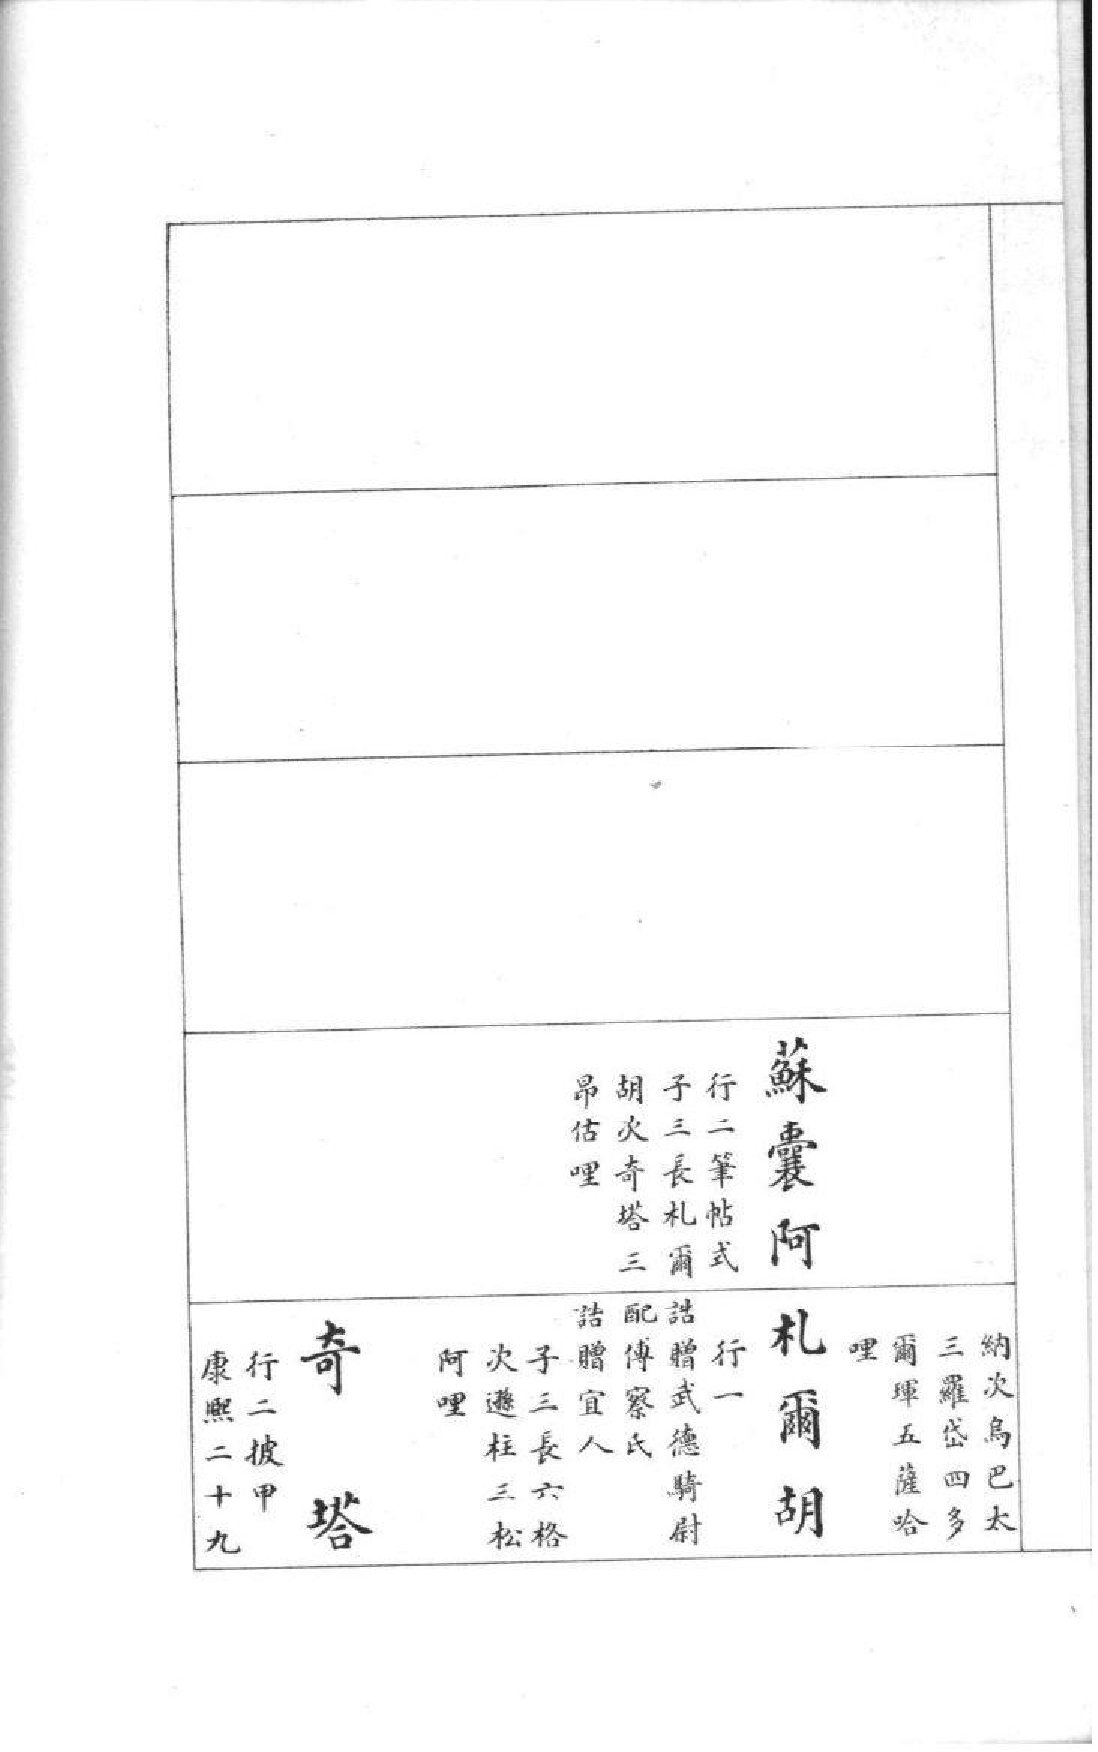 蘇囊阿
行二筆帖式
子三長札爾
胡次奇塔三
昂估哩
納次烏巴太
三羅岱四多
爾琿五薩哈
哩
札爾胡
行一
誥贈武德騎尉
配傅察氏
誥贈宜人
子三長六格
次遜柱三松
阿哩
奇塔
行二披甲
康熙二十九